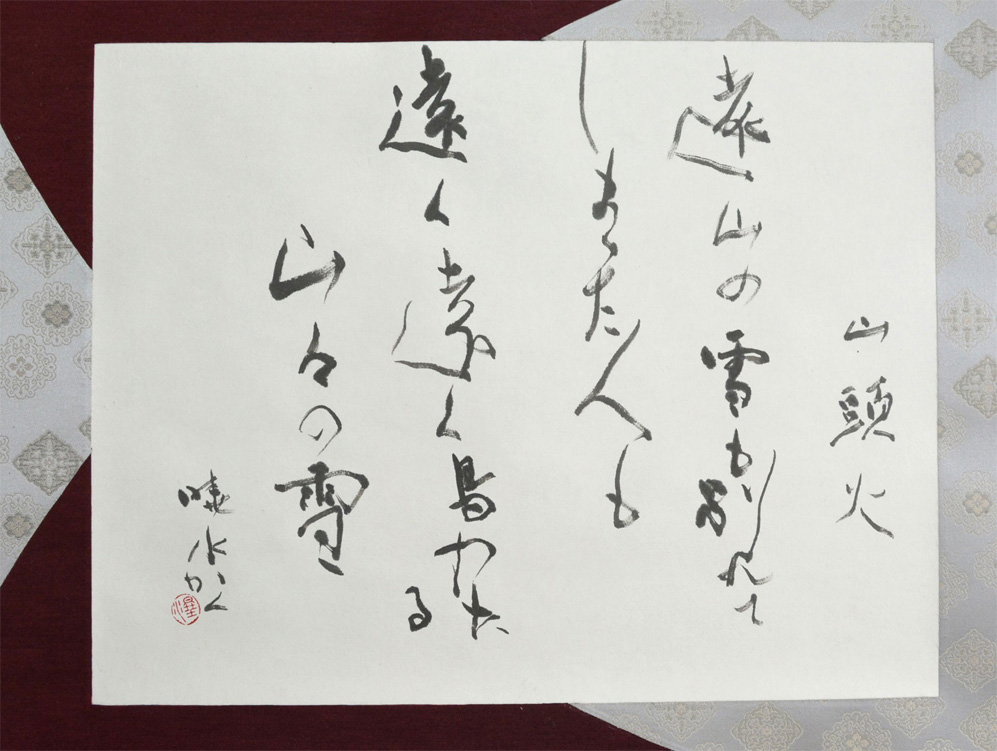 山頭火
遠山の雪も別れて
しまつた人も
遠く遠く鳥わた
る
山々の雪
暁水かく